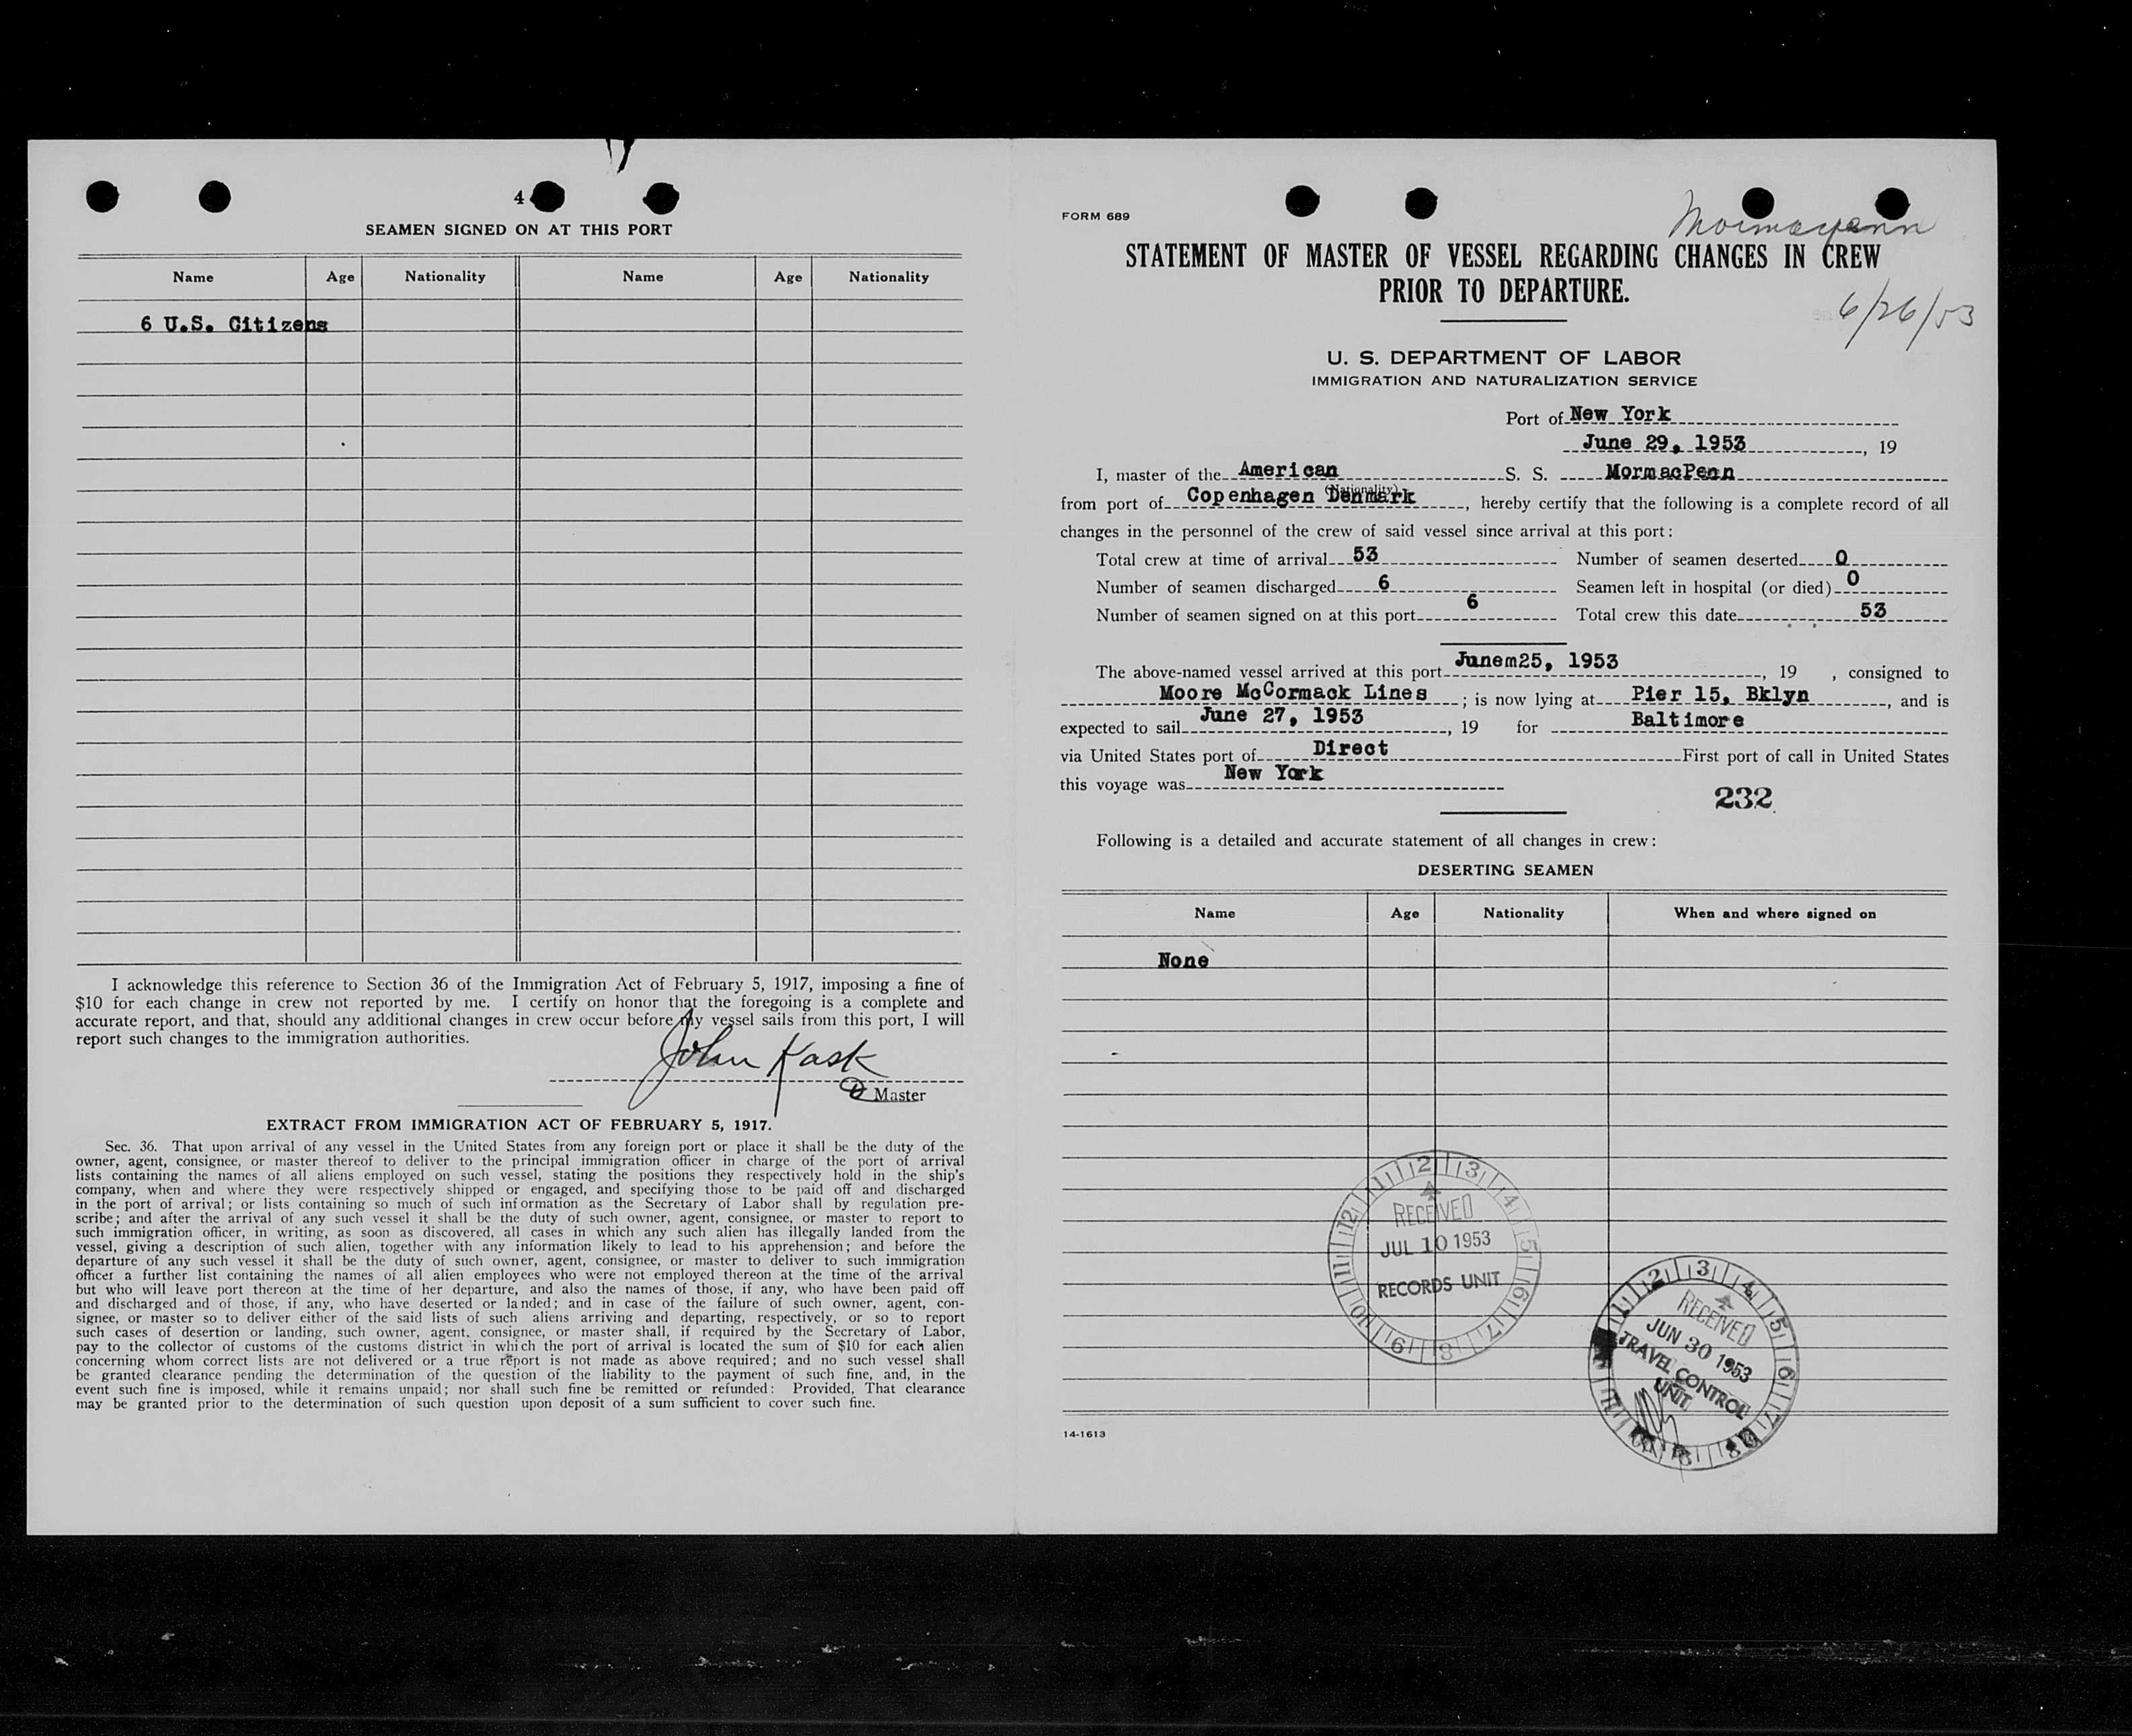 4
SEAMEN SIGNED ON AT THIS PORT
Name Age Nationality Name Age Nationality
6 U.S. Citizens
I acknowledge this reference to Section 36 of the Immigration Act of February 5, 1917, imposing a fine of
$10 for each change in crew not reported by me. I certify on honor that the foregoing is a complete and
accurate report, and that, should any additional changes in crew occur before my vessel sails from this port, I will
report such changes to the immigration authorities.
John Kask
Master
EXTRACT FROM IMMIGRATION ACT OF FEBRUARY 5, 1917.
Sec. 36. That upon arrival of any vessel in the United States from any foreign port or place it shall be the duty of the
owner, agent, consignee, or master thereof to deliver to the principal immigration officer in charge of the port of arrival
lists containing the names of all aliens employed on such vessel, stating the positions they respectively hold in the ship's
company, when and where they were respectively shipped or engaged, and specifying those to be paid off and discharged
in the port of arrival; or lists containing so much of such information as the Secretary of Labor shall by regulation pre-
scribe; and after the arrival of any such vessel it shall be the duty of such owner, agent, consignee, or master to report to
such immigration officer, in writing, as soon as discovered, all cases in which any such alien has illegally landed from the
vessel, giving a description of such alien, together with any information likely to lead to his apprehension; and before the
departure of any such vessel it shall be the duty of such owner, agent, consignee, or master to deliver to such immigration
officer a further list containing the names of all alien employees who were not employed thereon at the time of the arrival
but who will leave port thereon at the time of her departure, and also the names of those, if any, who have been paid off
and discharged and of those, if any, who have deserted or landed; and in case of the failure of such owner, agent, con-
signee, or master so to deliver either of the said lists of such aliens arriving and departing, respectively, or so to report
such cases of desertion or landing, such owner, agent, consignee, or master shall, if required by the Secretary of Labor,
pay to the collector of customs of the customs district in which the port of arrival is located the sum of $10 for each alien
concerning whom correct lists are not delivered or a true report is not made as above required; and no such vessel shall
be granted clearance pending the determination of the question of the liability to the payment of such fine, and, in the
event such fine is imposed, while it remains unpaid; nor shall such fine be remitted or refunded: Provided, That clearance
may be granted prior to the determination of such question upon deposit of a sum sufficient to cover such fine.
FORM 689
Mormacpenn
STATEMENT OF MASTER OF VESSEL REGARDING CHANGES IN CREW
PRIOR TO DEPARTURE.
6/26/53
U. S. DEPARTMENT OF LABOR
IMMIGRATION AND NATURALIZATION SERVICE
Port of New York
June 29, 1953, 19
I, master of the American S. S. MormacPenn
(Nationality)
from port of Copenhagen Denmark, hereby certify that the following is a complete record of all
changes in the personnel of the crew of said vessel since arrival at this port:
Total crew at time of arrival 53 Number of seamen deserted 0
Number of seamen discharged 6 Seamen left in hospital (or died) 0
Number of seamen signed on at this port 6 Total crew this date 53
The above-named vessel arrived at this port Junem25, 1953, 19 , consigned to
Moore McCormack Lines ; is now lying at Pier 15, Bklyn, and is
expected to sail June 27, 1953, 19 for Baltimore
via United States port of Direct First port of call in United States
this voyage was New York
232
Following is a detailed and accurate statement of all changes in crew:
DESERTING SEAMEN
Name Age Nationality When and where signed on
None
RECEIVED
JUL 10 1953
RECORDS UNIT
RECEIVED
JUN 30 1953
TRAVEL CONTROL
UNIT
14-1613